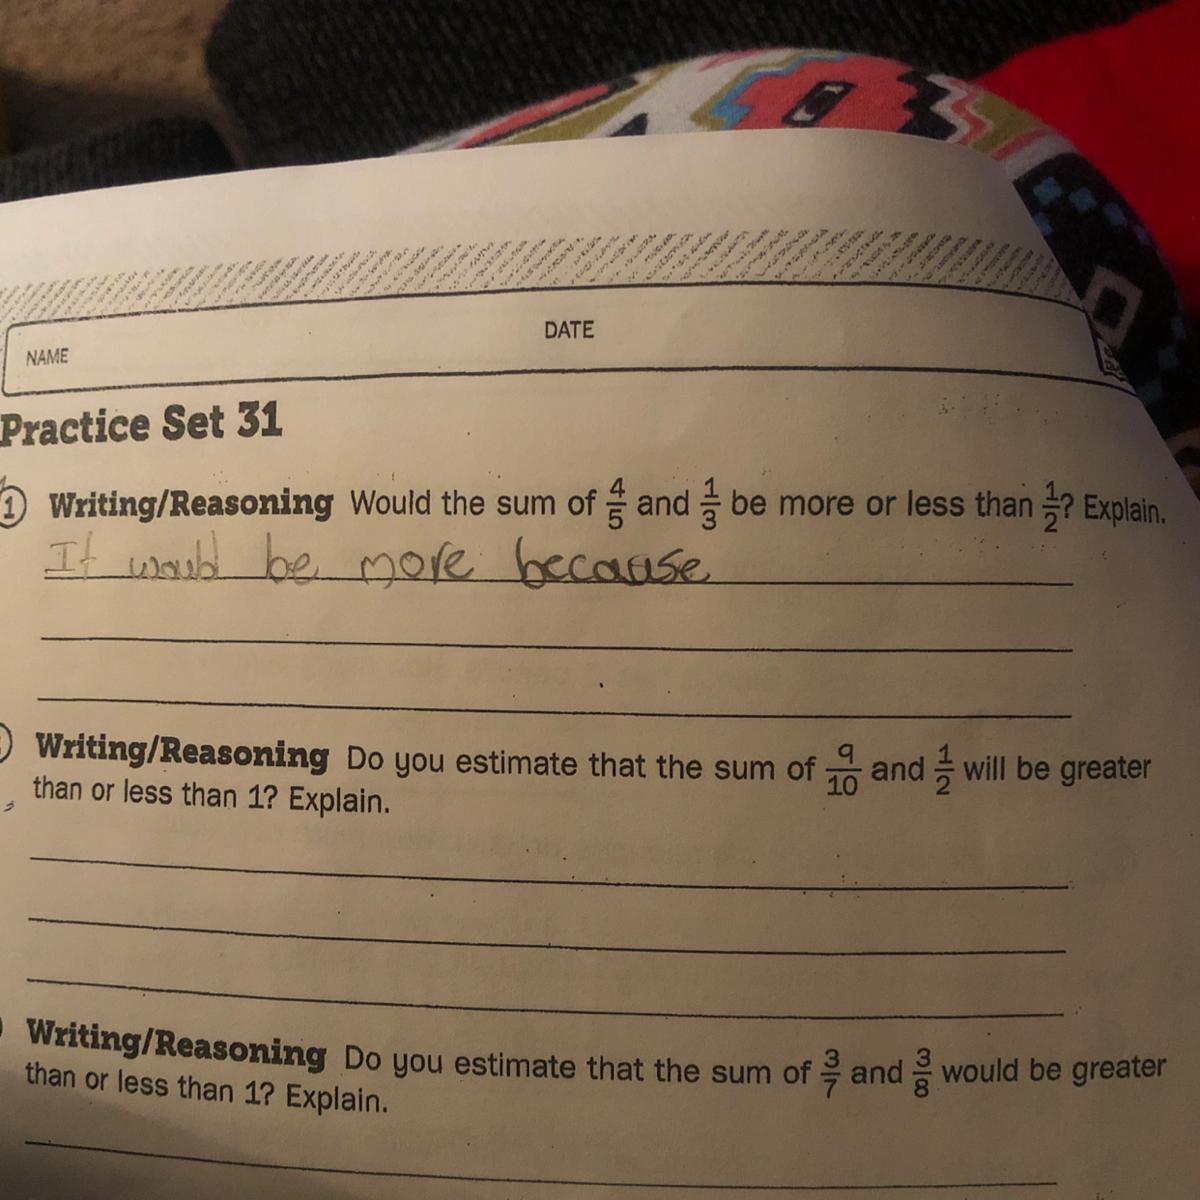 NAME DATE
Practice Set 31
1 Writing/Reasoning Would the sum of 4/5 and 1/3 be more or less than 1/2? Explain.
It would be more because
Writing/Reasoning Do you estimate that the sum of 9/10 and 1/2 will be greater
than or less than 1? Explain.
Writing/Reasoning Do you estimate that the sum of 3/7 and 3/8 would be greater
than or less than 1? Explain.